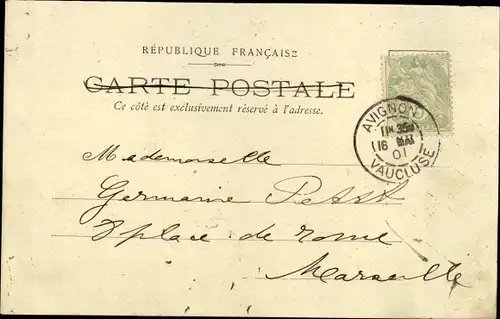 RÉPUBLIQUE FRANÇAISE
CARTE POSTALE
Ce côté est exclusivement réservé à l'adresse.
AVIGNON
16 MAI
01
VAUCLUSE
Mademoiselle
Germaine Petit
8 place de rome
Marseille